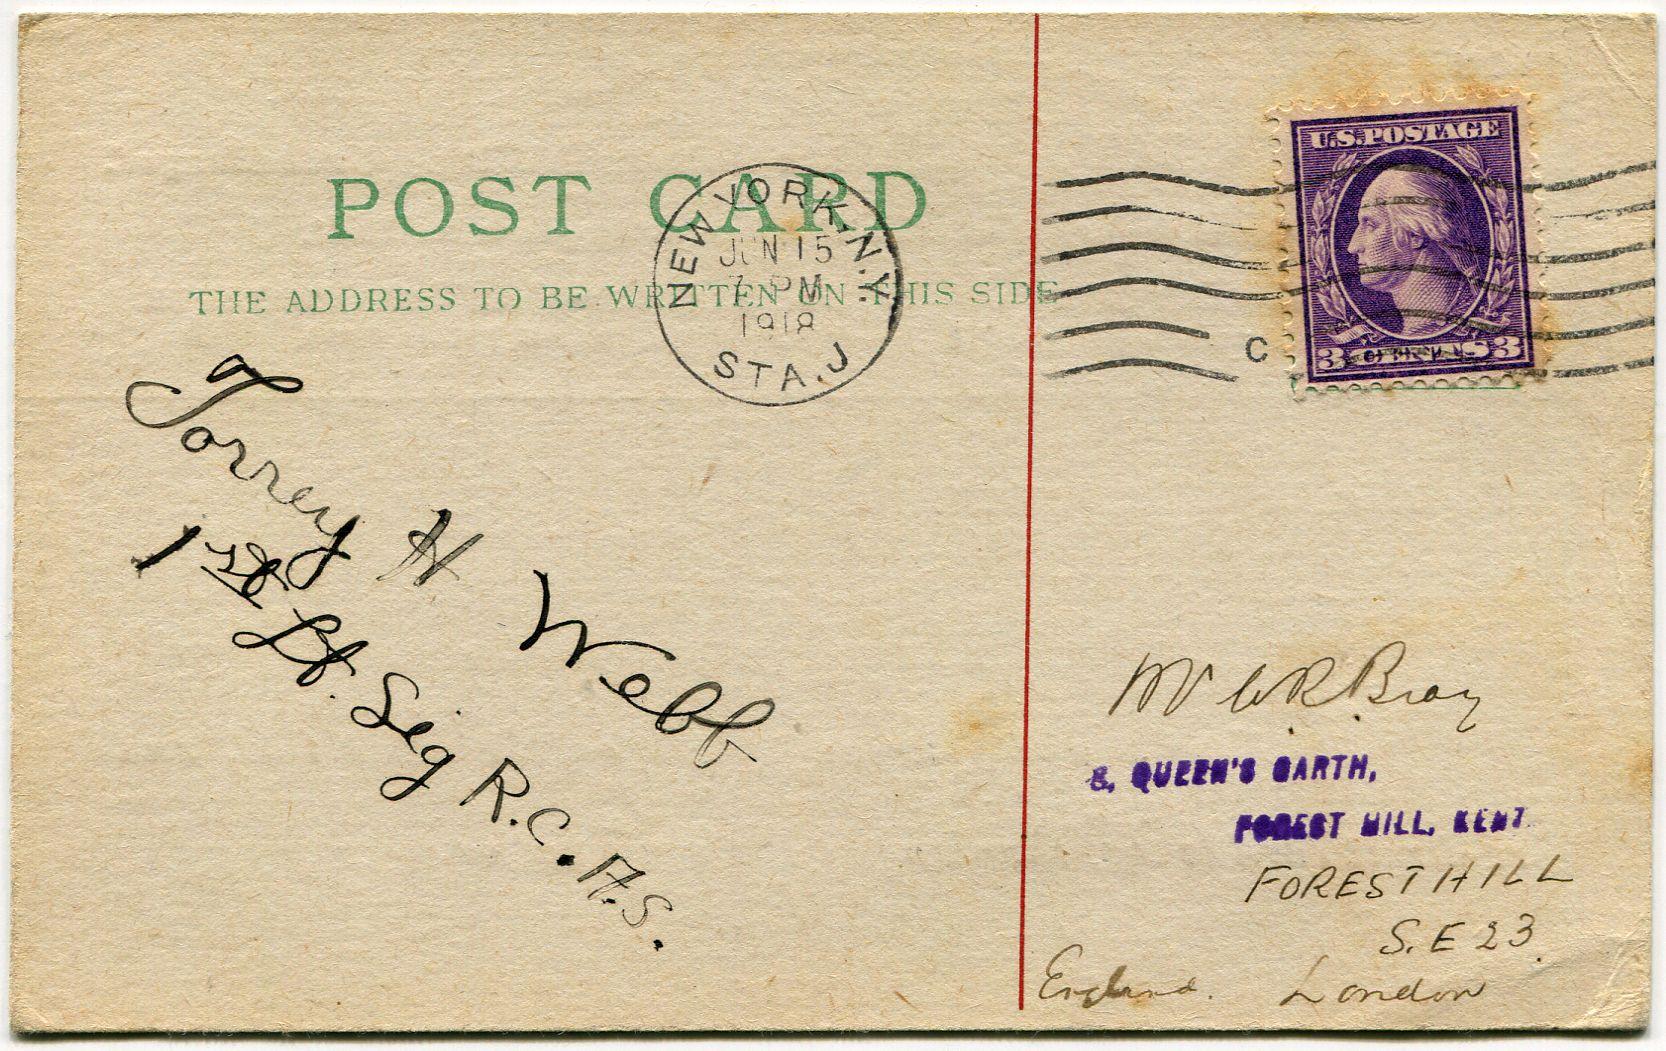 POST CARD
THE ADDRESS TO BE WRITTEN ON THIS SIDE
NEW YORK, N.Y.
JUN 15
7 PM
1918
STA. J
C
U.S. POSTAGE
3 CENTS 3
Torrey H Webb
1st Lt. Sig R.C. A.S.
Mr W R Bray
8, QUEEN'S GARTH,
FOREST HILL, KENT.
FOREST HILL
S.E 23.
England. London